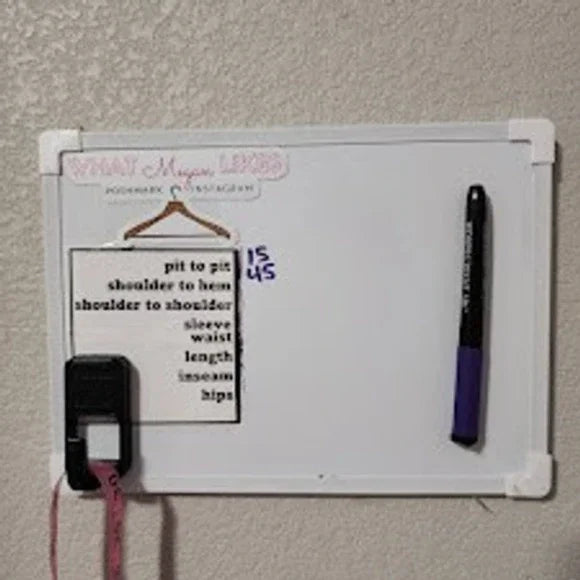 WHAT Megan LIKES
POSHMARK INSTAGRAM
pit to pit 15
shoulder to hem 45
shoulder to shoulder
sleeve
waist
length
inseam
hips